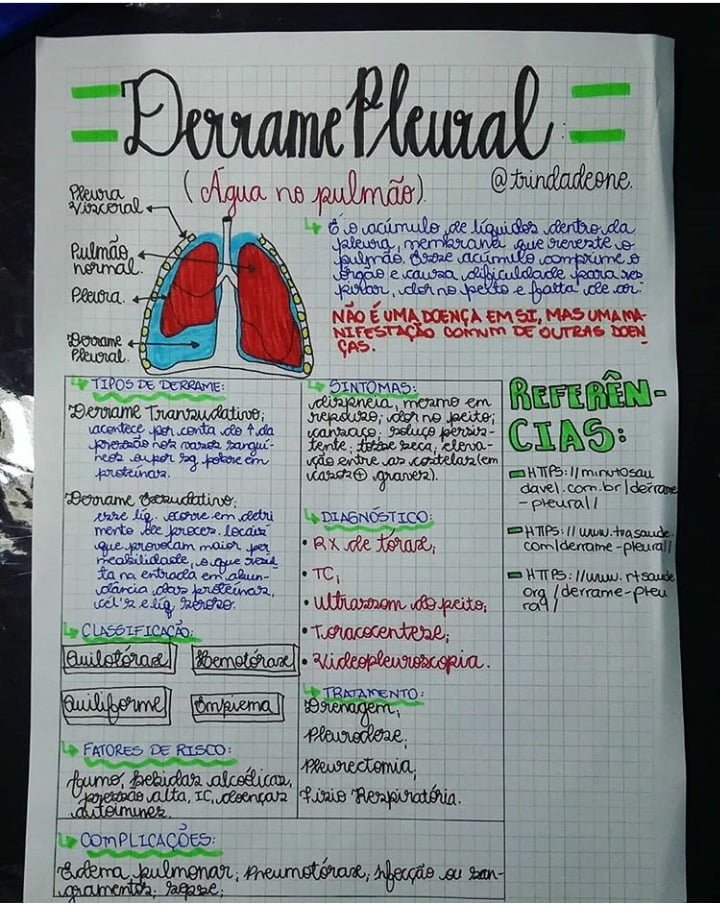 Derrame Pleural
(Água no pulmão).
@trindadeone.
Pleura
Visceral
Pulmão
normal.
Pleura.
Derrame
Pleural.
É o acúmulo de líquidos dentro da
pleura, membrana que reveste o
pulmão. Esse acúmulo comprime o
órgão e causa dificuldade para res
pirar, dor no peito e falta de ar.
NÃO É UMA DOENÇA EM SI, MAS UMA MA
NIFESTAÇÃO COMUM DE OUTRAS DOEN
ÇAS.
TIPOS DE DERRAME:
Derrame Transudativo;
acontece por conta do ↑ da
pressão nos vasos sanguí
neos ou por sg pobre em
proteínas.
Derrame Exsudativo:
esse líq. ocorre em detri
mento de proces. locais
que provocam maior per
meabilidade, o que resul
ta na entrada em abun
dância das proteínas,
cél's e líq seroso.
CLASSIFICAÇÃO:
Quilotórax
Hemotórax
Quiliforme
Empiema
FATORES DE RISCO:
fumo, bebidas alcoólicas,
pressão alta, IC, doenças
autoimunes.
SINTOMAS:
dispneia, mesmo em
repouso; dor no peito;
cansaço; soluço persis
tente; tosse seca, eleva-
ção entre as costelas (em
casos ⊕ graves).
DIAGNÓSTICO:
• RX de tórax;
• TC;
• Ultrassom do peito;
• Toracocentese;
• Videopleuroscopia.
TRATAMENTO:
Drenagem;
Pleurodese;
Pleurectomia;
Fisio Respiratória.
COMPLICAÇÕES:
Edema pulmonar; Pneumotórax; infecção ou san-
gramentos; sepse;
REFERÊN-
CIAS:
HTTPS://minutosau
davel.com.br/derrame
-pleural/
HTTPS://www.tuasaude.
com/derrame-pleural/
HTTPS://www.rtsaude
org/derrame-pleu
ral/